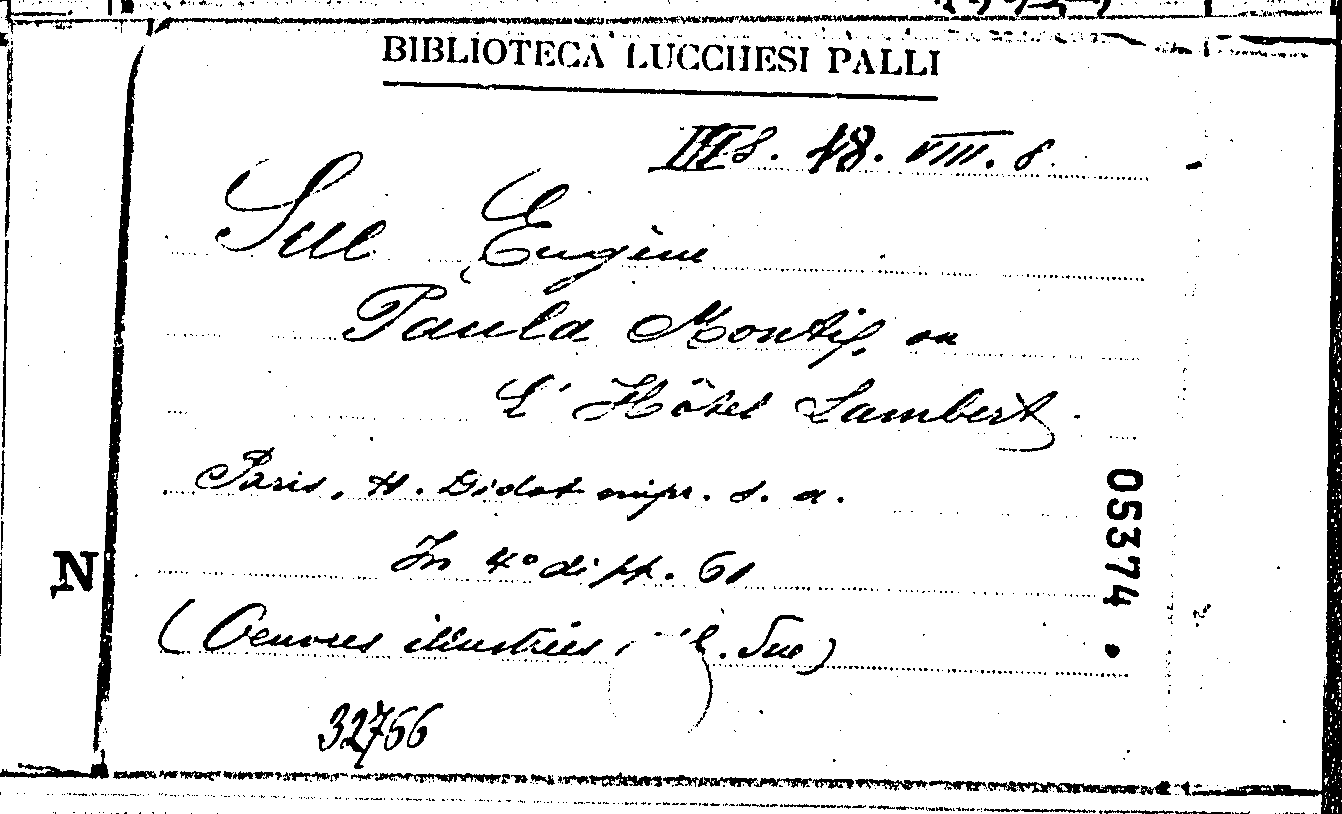 BIBLIOTECA LUCCHESI PALLI
III S. 48. VIII. 8.
Sue Eugène
Paula Monti, ou
L'Hôtel Lambert.
Paris, H. Didot impr. s. a.
In 4° di pp. 61
N
05374
(Oeuvres illustrées E. Sue)
32766